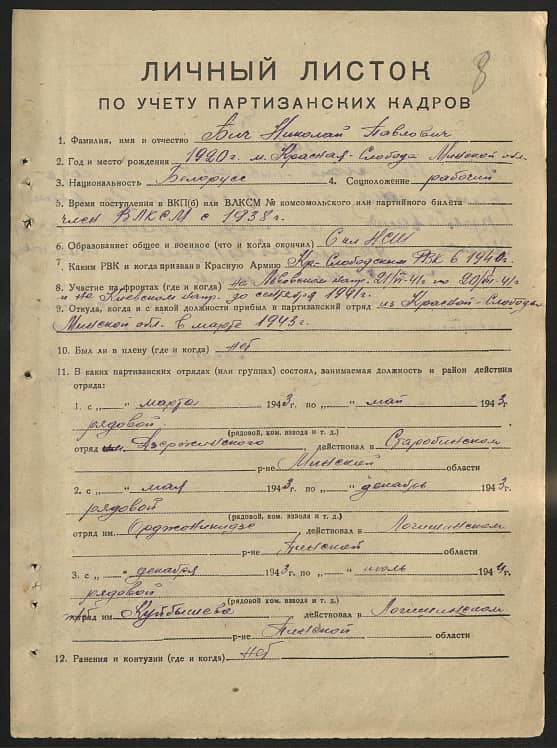 8
ЛИЧНЫЙ ЛИСТОК
ПО УЧЕТУ ПАРТИЗАНСКИХ КАДРОВ
1. Фамилия, имя и отчество Бич Николай Павлович
2. Год и место рождения 1920 г. м. Красная-Слобода Минской обл.
3. Национальность Белорусс 4. Соцположение рабочий
5. Время поступления в ВКП(б) или ВЛКСМ № комсомольского или партийного билета
член ВЛКСМ с 1938 г.
6. Образование: общее и военное (что и когда окончил) 6 кл НСШ
7. Каким РВК и когда призван в Красную Армию Кр-Слободским РВК в 1940 г.
8. Участие на фронтах (где и когда) на Львовском напр. 21/VI-41г по 20/VII-41г
и на Киевском напр. до сентября 1941 г.
9. Откуда, когда и с какой должности прибыл в партизанский отряд из Красной-Слободы
Минской обл. в марте 1943 г.
10. Был ли в плену (где и когда) нет
11. В каких партизанских отрядах (или группах) состоял, занимаемая должность и район действия
отряда:
1. с „ “ марта 1943 г. по „ “ май 1943 г.
рядовой
(рядовой, ком. взвода и т. д.)
отряд им. Дзержинского, действовал в Старобинском
р-не Минской области
2. с „ “ мая 1943 г. по „ “ декабрь 1943 г.
рядовой
(рядовой, ком. взвода и т. д.)
отряд им. Орджоникидзе, действовал в Логишинском
р-не Пинской области
3. с „ “ декабря 1943 г. по „ “ июль 1944 г.
рядовой
(рядовой, ком. взвода и т. д.)
отряд им. Куйбышева действовал в Логишинском
р-не Пинской области
12. Ранения и контузии (где и когда) нет